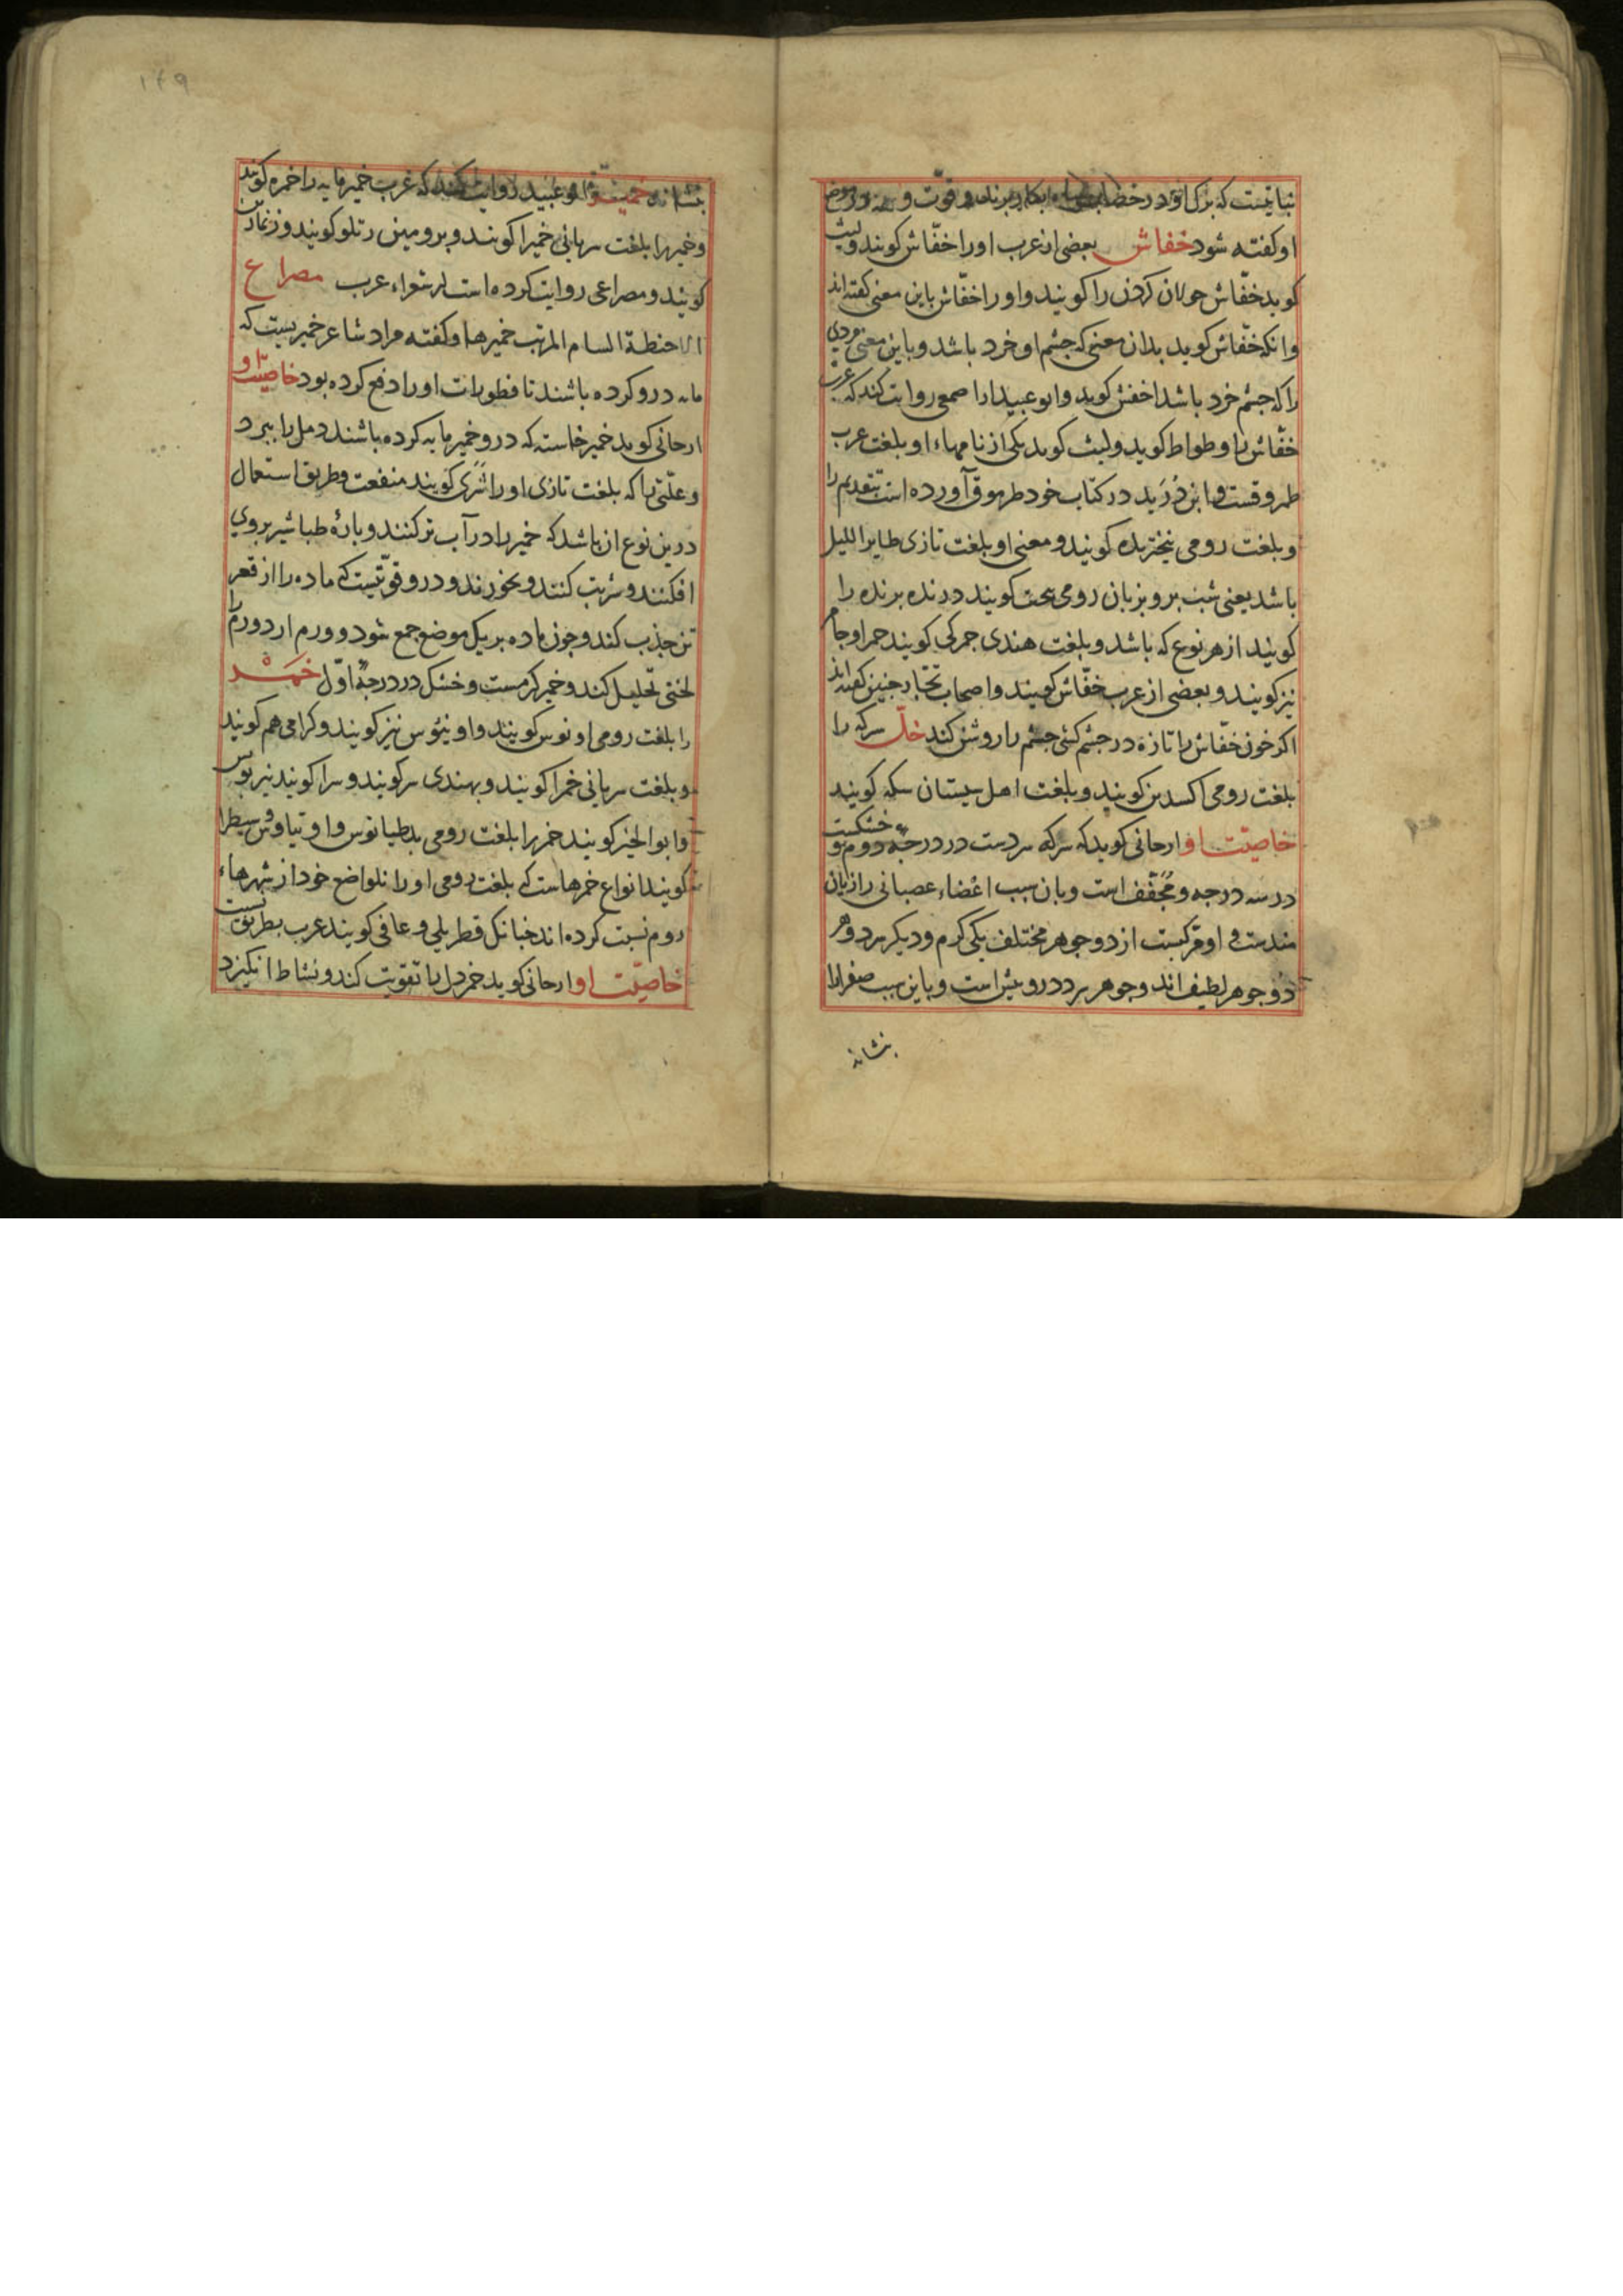 نباتیست که برک او در خضاب بکار برند و قوت و
او کفته شود خفاش بعضی از عرب او را خفّاش کویند ولیث
کوید خفّاش جولان کردن را کویند و او را خفّاش باین معنی کفته اند
وانکه خفّاش کوید بدان معنی که جشم او خرد باشد و باین معنی مردی
را که جشم خرد باشد اخفش کوید و ابو عبید از اصمعی روایت کند که عرب
خفّاش را وطواط کوید ولیث کوید یکی از نامهاء او بلغت عرب
طمروقست و ابن دُرَید در کتاب خود طرموق آورده است بتقدیم را
و بلغت رومی نیختریده کویند و معنی او بلغت تازی طایر اللیل
باشد یعنی شب پر و بزبان رومی کویند درنده پرنده را
کویند از هر نوع که باشد و بلغت هندی جمرکی کویند جمر او جام
نیز کویند و بعضی از عرب خفّاش کویند و اصحاب تجارب جنین کفته اند
اکر خون خفّاش را تازه در جشم کنی جشم را روشن کند خلّ سرکه را
بلغت رومی اکسدین کویند و بلغت اهل سیستان سکه کویند
خاصیّت او ارجانی کوید که سرکه سردست در درجهٔ دوم و خشکست
در سه درجه و مُجَفّف است و بان سبب اعضاء عصبانی را زیان
مندست و او مرکبست از دو جوهر مختلف یکی کرم و دیکر سرد و هر
دو جوهر لطیف اند و جوهر سرد درو بیش است و باین سبب صفرا را
بنشاند
۱۴۹
بنشاند خمیر ابو عبید روایت کند که عرب خمیر مایه را خمره کویند
و خمیر را بلغت سریانی خمیرا کویند و برومی زتلو کویند و
کویند و مصراعی روایت کرده است از شعراء عرب مصراع
خمیرها و کفته مراد شاعر خمیریست که
مایه درو کرده باشند تا فطورات او را دفع کرده بود خاصیّت او
ارجانی کوید خمیر خاسته که درو خمیر مایه کرده باشند دمل را ببرد
و علّتی را که بلغت تازی او را شَری کویند منفعت و طریق استعمال
درین نوع ان باشد که خمیر را در آب تر کنند و پارهٔ طباشیر بروی
افکنند و شربت کنند و بخورند و درو قوّتیست که ماده را از قعر
تن جذب کند و جون ماده بر یک موضع جمع شود و ورم ارد ورم را
لختی تحلیل کند و خمیر کرمست و خشک در درجهٔ اوّل خَمْر
را بلغت رومی اونوس کویند و اوینوس نیز کویند و کرامی هم کویند
و بلغت سریانی خمرا کویند و بهندی سر کویند و سرا کویند نیز بوس
و ابو الخیر کویند خمر را بلغت رومی بدطیانوس و او تیاوش سیطرا
کویند انواع خمرهاست که بلغت رومی او را بمواضع خود از شهرهاء
روم نسبت کرده اند جنانک قطربلی و عافی کویند عرب بطریق نسبت
خاصیّت او ارجانی کوید خمر دل را تقویت کند و نشاط انکیزد